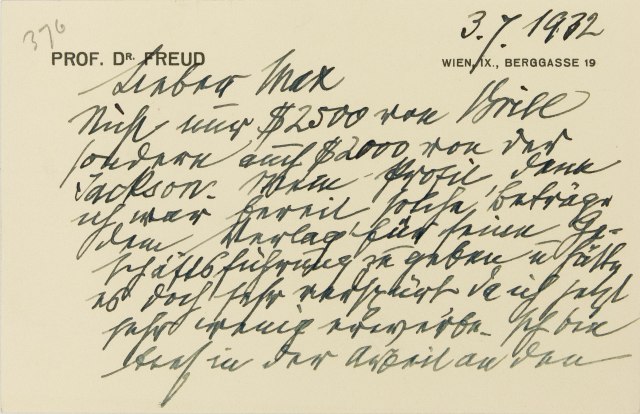 376
3.7.1932
PROF. DR. FREUD
WIEN, IX., BERGGASSE 19
Lieber Max
Nicht nur $2500 von Brill
sondern auch $2000 von der
Jackson. Mein Profit denn
ich war bereit solche Beträge
dem Verlag für seine Ge-
schäftsführung zu geben u hätte
es doch sehr verspürt da ich jetzt
sehr wenig erwerbe. Ich bin
tief in der Arbeit an den